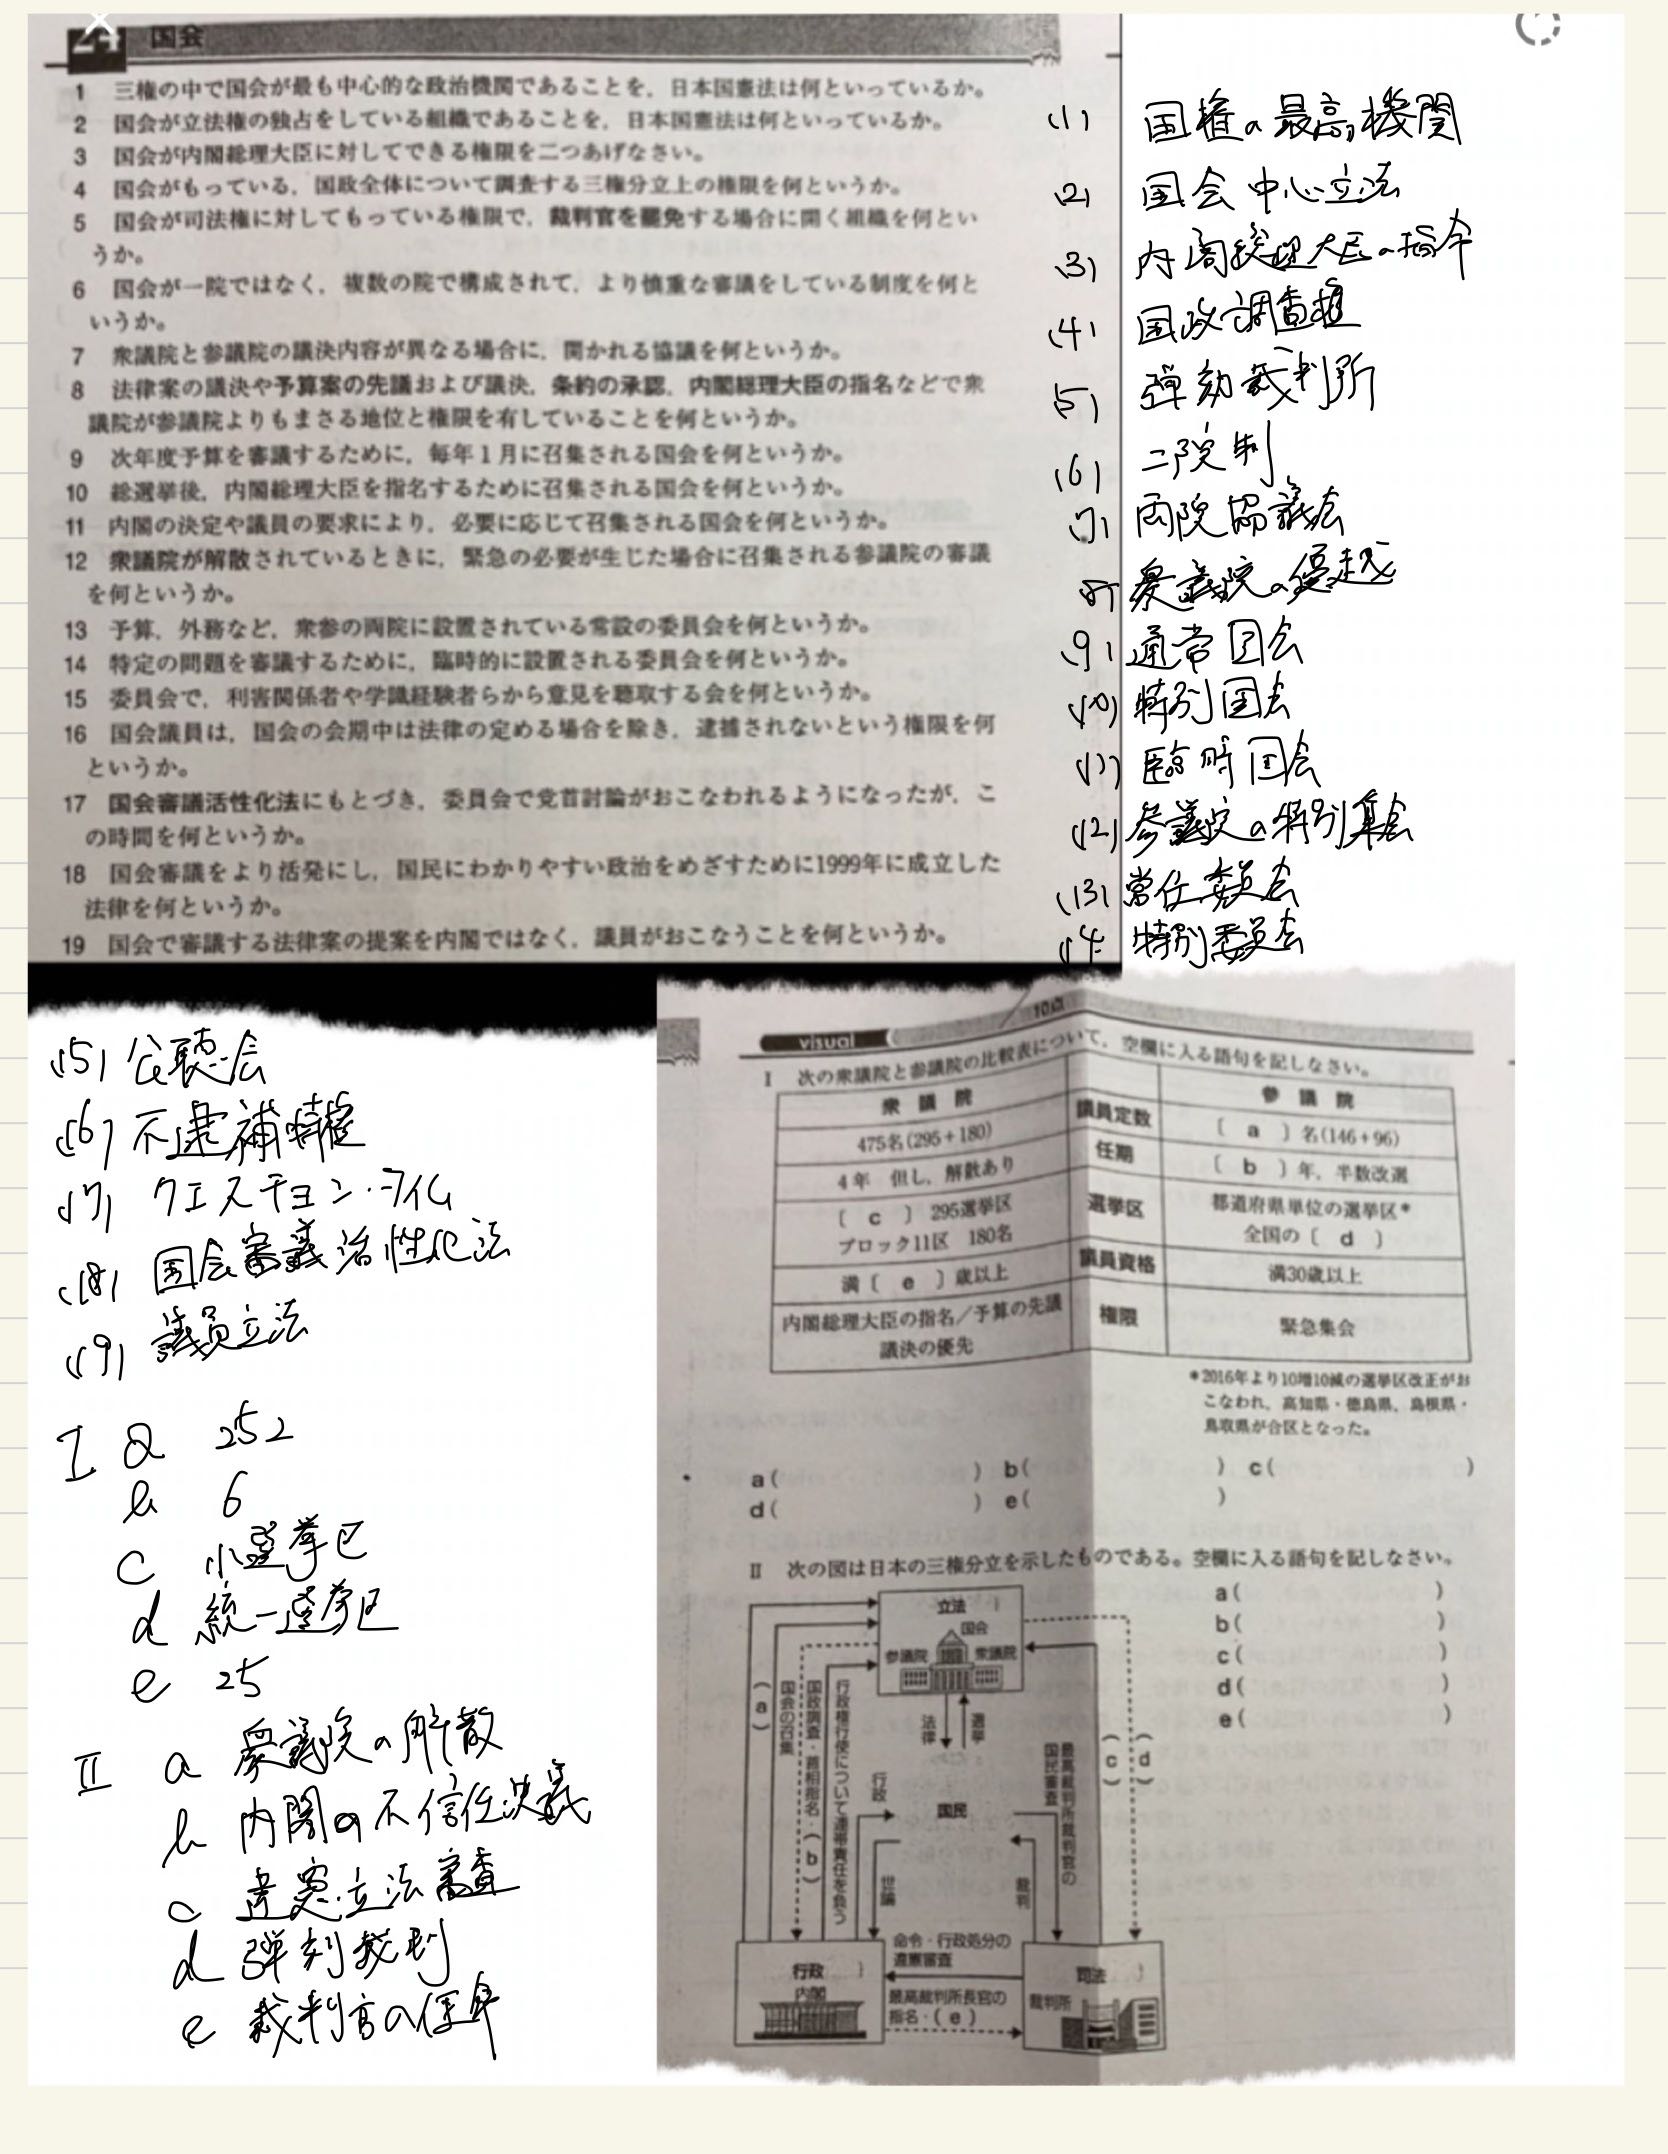 24 国会
1 三権の中で国会が最も中心的な政治機関であることを，日本国憲法は何といっているか。
2 国会が立法権の独占をしている組織であることを，日本国憲法は何といっているか。
3 国会が内閣総理大臣に対してできる権限を二つあげなさい。
4 国会がもっている，国政全体について調査する三権分立上の権限を何というか。
5 国会が司法権に対してもっている権限で，裁判官を罷免する場合に開く組織を何とい
うか。
6 国会が一院ではなく，複数の院で構成されて，より慎重な審議をしている制度を何と
いうか。
7 衆議院と参議院の議決内容が異なる場合に，開かれる協議を何というか。
8 法律案の議決や予算案の先議および議決，条約の承認，内閣総理大臣の指名などで衆
議院が参議院よりもまさる地位と権限を有していることを何というか。
9 次年度予算を審議するために，毎年1月に召集される国会を何というか。
10 総選挙後，内閣総理大臣を指名するために召集される国会を何というか。
11 内閣の決定や議員の要求により，必要に応じて召集される国会を何というか。
12 衆議院が解散されているときに，緊急の必要が生じた場合に召集される参議院の審議
を何というか。
13 予算，外務など，衆参の両院に設置されている常設の委員会を何というか。
14 特定の問題を審議するために，臨時的に設置される委員会を何というか。
15 委員会で，利害関係者や学識経験者らから意見を聴取する会を何というか。
16 国会議員は，国会の会期中は法律の定める場合を除き，逮捕されないという権限を何
というか。
17 国会審議活性化法にもとづき，委員会で党首討論がおこなわれるようになったが，こ
の時間を何というか。
18 国会審議をより活発にし，国民にわかりやすい政治をめざすために1999年に成立した
法律を何というか。
19 国会で審議する法律案の提案を内閣ではなく，議員がおこなうことを何というか。
(1) 国権の最高機関
(2) 国会中心立法
(3) 内閣総理大臣の指令
(4) 国政調査権
(5) 弾劾裁判所
(6) 二院制
(7) 両院協議会
(8) 衆議院の優越
(9) 通常国会
(10) 特別国会
(11) 臨時国会
(12) 参議院の特別集会
(13) 常任委員会
(14) 特別委員会
(15) 公聴会
(16) 不逮補特権
(17) クエスチョン・タイム
(18) 国会審議活性化法
(19) 議員立法
I a 252
b 6
c 小選挙区
d 統一選挙区
e 25
II a 衆議院の解散
b 内閣の不信任決議
c 違憲立法審査
d 弾刻裁判
e 裁判官の任命
visual 10点
I 次の衆議院と参議院の比較表について，空欄に入る語句を記しなさい。
衆議院 参議院
475名(295+180) 議員定数 〔 a 〕名(146+96)
4年 但し，解散あり 任期 〔 b 〕年，半数改選
〔 c 〕295選挙区 選挙区 都道府県単位の選挙区*
ブロック11区 180名 全国の〔 d 〕
満〔 e 〕歳以上 議員資格 満30歳以上
内閣総理大臣の指名／予算の先議 権限 緊急集会
議決の優先
*2016年より10増10減の選挙区改正がお
こなわれ，高知県・徳島県，島根県・
鳥取県が合区となった。
a( ) b( ) c( )
d( ) e( )
II 次の図は日本の三権分立を示したものである。空欄に入る語句を記しなさい。
a( )
b( )
c( )
d( )
e( )
立法
国会
参議院 衆議院
(a)
国会の召集
国政調査・首相指名・(b)
行政権行使について連帯責任を負う
法律
選挙
行政
国民
世論
裁判
最高裁判所裁判官の
国民審査
(c)
(d)
命令・行政処分の
違憲審査
行政
内閣
最高裁判所長官の
指名・(e)
司法
裁判所